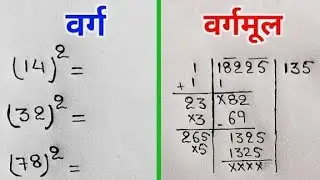 वर्ग
(14)² =
(32)² =
(78)² =
वर्गमूल
1 18225 135
+1 1
23 ×82
×3 -69
265 1325
×5 1325
××××